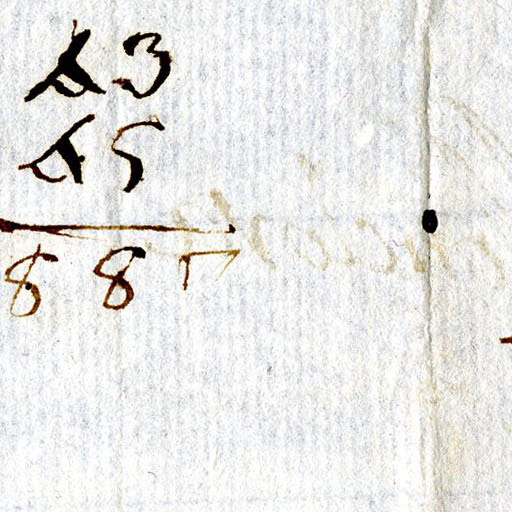 43
45
88